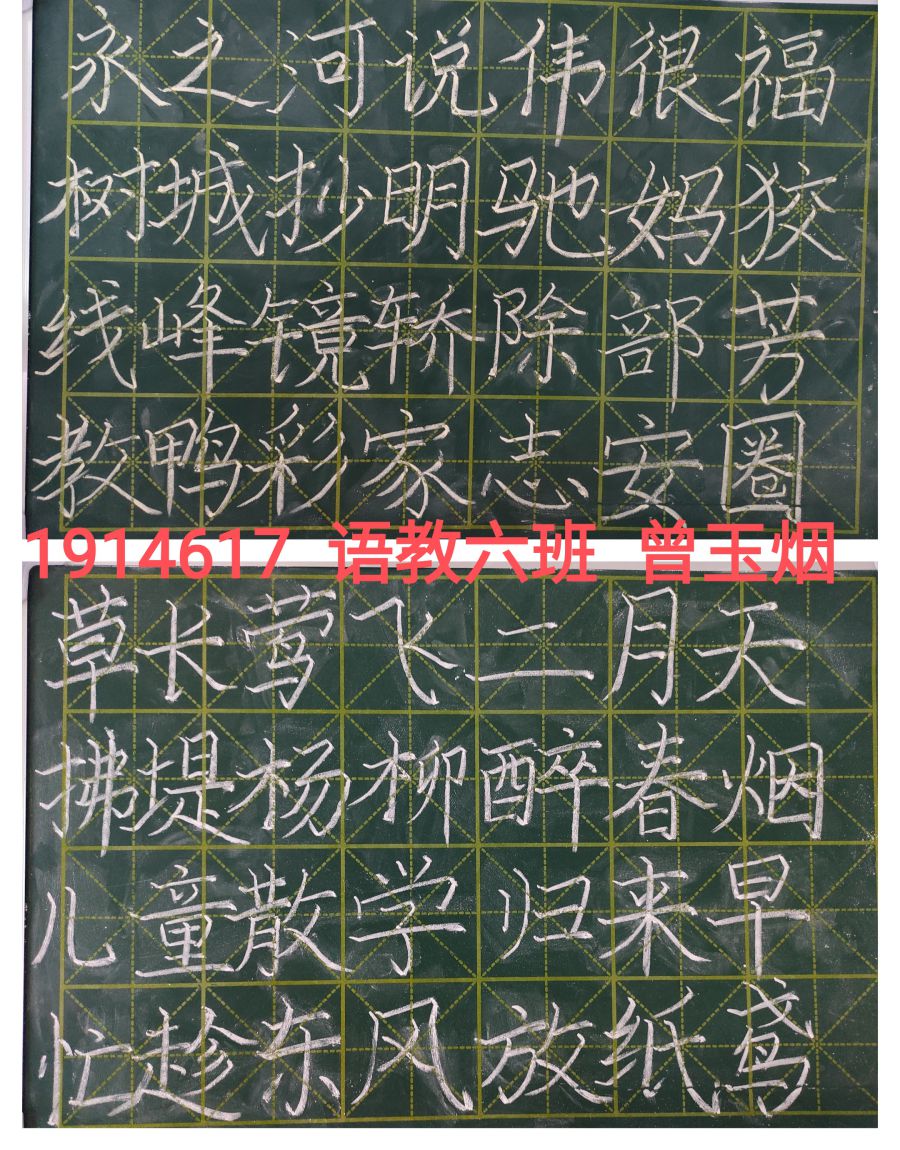 永之河说伟很福
树城抄明驰妈狡
线峰镜轿除部芳
教鸭彩家志安圈
1914617 语教六班 曾玉烟
草长莺飞二月天
拂堤杨柳醉春烟
儿童散学归来早
忙趁东风放纸鸢